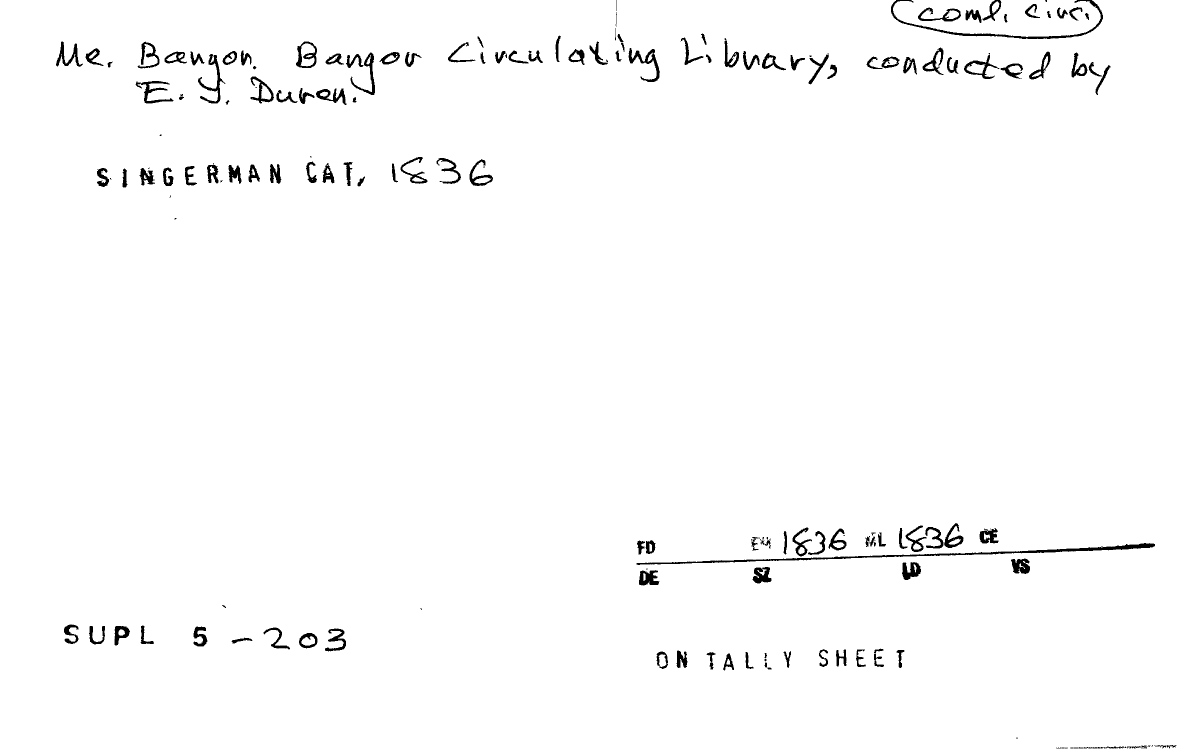 coml. circ.
Me. Bangor. Bangor Circulating Library, conducted by
E. J. Duren.
SINGERMAN CAT, 1836
FD EXH 1836 ML 1836 CE
DE SZ LD VS
SUPL 5 - 203
ON TALLY SHEET